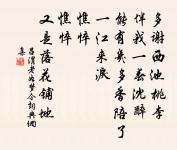 多谢西池桃李
伴我一春沈醉
能有幾多香陪了
一江来泪
憔悴
憔悴
又是落花铺地
吕渭老如梦令词典网
集